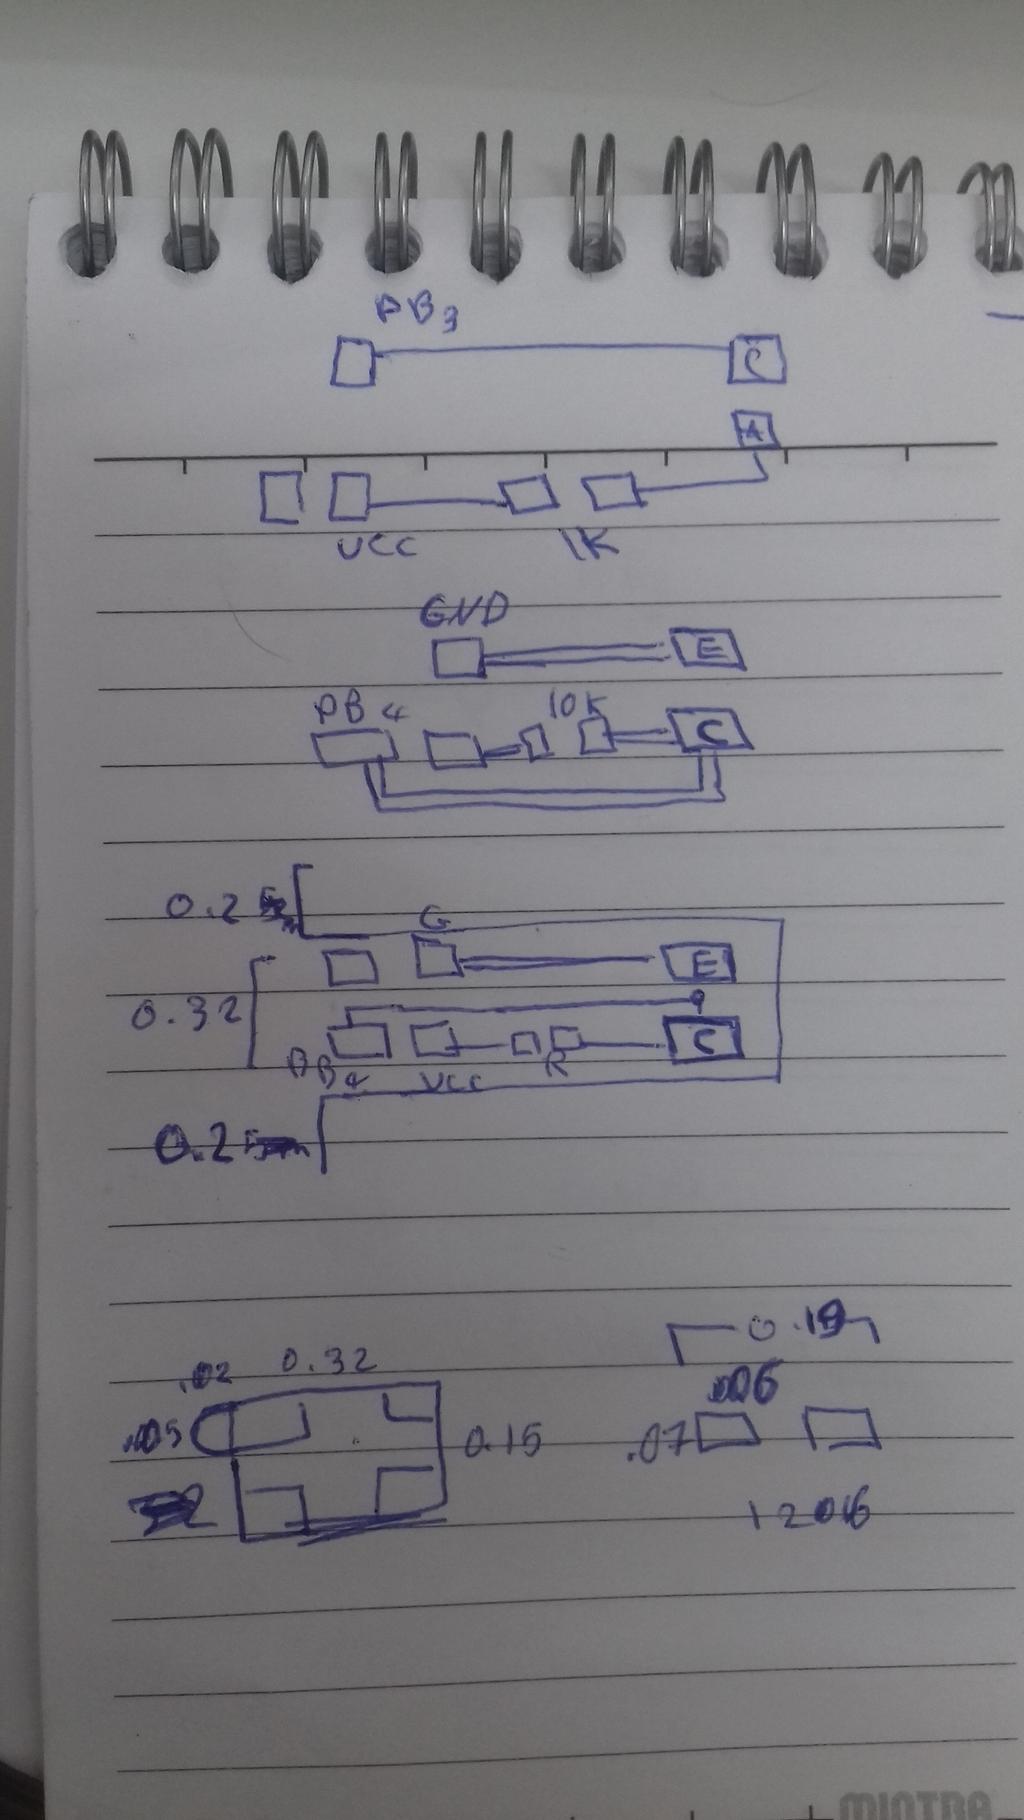 PB3
C
A
VCC 1K
GND
E
PB4 10K
C
0.2
G
E
0.32
C
PB4 VCC R
0.2
0.19
.02 0.32
.006
.05 0.15 .07
1206
MINTRA